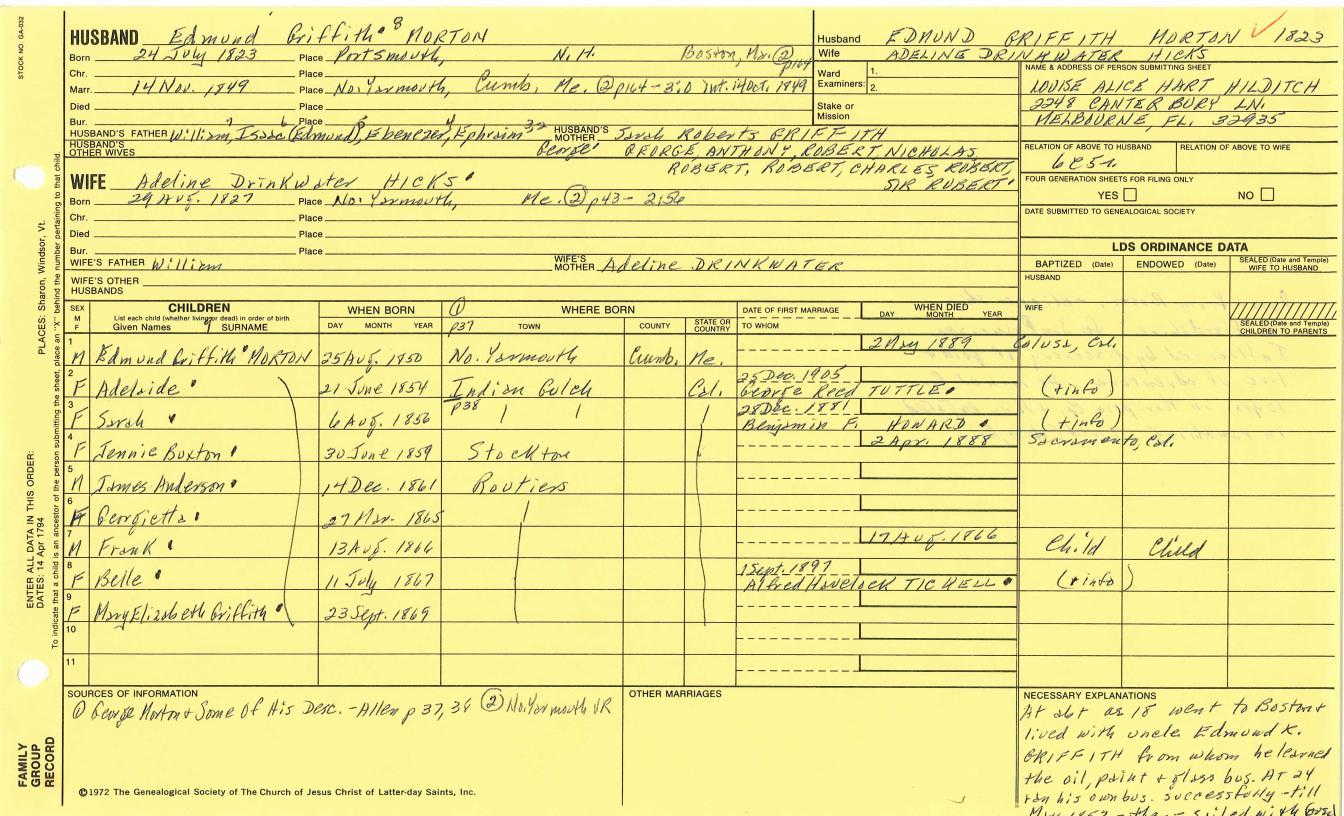 STOCK NO. GA-032
HUSBAND Edmund Griffith 8 MORTON
Born 24 July 1823 Place Portsmouth, N.H. Boston, Ma. ② p164
Chr. Place
Marr. 14 Nov. 1849 Place No. Yarmouth, Cumb, Me. ② p164-3:0 Int. 14 Oct. 1849
Died Place
Bur. Place
HUSBAND'S FATHER William, 7 Isaac 6 (Edmund), 5 Ebenezer, 4 Ephraim 3,2 George' HUSBAND'S MOTHER Sarah Roberts GRIFFITH
HUSBAND'S OTHER WIVES
GEORGE ANTHONY, ROBERT NICHOLAS,
ROBERT, ROBERT, CHARLES, ROBERT,
SIR ROBERT'
Husband EDMUND GRIFFITH MORTON ✓ 1823
Wife ADELINE DRINKWATER HICKS
Ward 1.
Examiners: 2.
Stake or Mission
NAME & ADDRESS OF PERSON SUBMITTING SHEET
LOUISE ALICE HART HILDITCH
2248 CANTERBURY LN.
MELBOURNE, FL. 32935
RELATION OF ABOVE TO HUSBAND 6C5r. RELATION OF ABOVE TO WIFE
FOUR GENERATION SHEETS FOR FILING ONLY
YES NO
DATE SUBMITTED TO GENEALOGICAL SOCIETY
WIFE Adeline Drinkwater HICKS
Born 29 Aug. 1827 Place No. Yarmouth, Me. ② p43-2;56
Chr. Place
Died Place
Bur. Place
WIFE'S FATHER William WIFE'S MOTHER Adeline DRINKWATER
WIFE'S OTHER HUSBANDS
LDS ORDINANCE DATA
BAPTIZED (Date) ENDOWED (Date) SEALED (Date and Temple) WIFE TO HUSBAND
HUSBAND
WIFE
SEALED (Date and Temple) CHILDREN TO PARENTS
SEX M F
CHILDREN
List each child (whether living or dead) in order of birth
Given Names 9 SURNAME
WHEN BORN
DAY MONTH YEAR
① p37
WHERE BORN
TOWN COUNTY STATE OR COUNTRY
DATE OF FIRST MARRIAGE
TO WHOM
WHEN DIED
DAY MONTH YEAR
1 M Edmund Griffith MORTON 25 Aug. 1850 No. Yarmouth Cumb. Me. 2 May 1889 Colusa, Cal.
2 F Adelaide 21 June 1854 Indian Gulch Cal. 25 Dec. 1905 George Reed TUTTLE (+info)
3 F Sarah 6 Aug. 1856 p38 28 Dec. 1881 Benjamin F. HOWARD (+info)
4 F Jennie Buxton 30 June 1859 Stockton 2 Apr. 1888 Sacramento, Cal.
5 M James Anderson 14 Dec. 1861 Routiers
6 F Georgietta 27 Mar. 1865
7 M Frank 13 Aug. 1866 17 Aug. 1866 Child Child
8 F Belle 11 July 1867 1 Sept. 1897 Alfred Havelock TICKELL (+info)
9 F Mary Elizabeth Griffith 23 Sept. 1869
10
11
SOURCES OF INFORMATION
① George Morton & Some of His Desc. - Allen p 37, 38 ② No. Yarmouth VR
OTHER MARRIAGES
NECESSARY EXPLANATIONS
At abt as 18 went to Boston &
lived with uncle Edmund K.
GRIFFITH from whom he learned
the oil, paint & glass bus. At 24
ran his own bus. successfully - till
©1972 The Genealogical Society of The Church of Jesus Christ of Latter-day Saints, Inc.
FAMILY GROUP RECORD
ENTER ALL DATA IN THIS ORDER:
DATES: 14 Apr 1794
PLACES: Sharon, Windsor, Vt.
To indicate that a child is an ancestor of the person submitting the sheet, place an "X" behind the number pertaining to that child